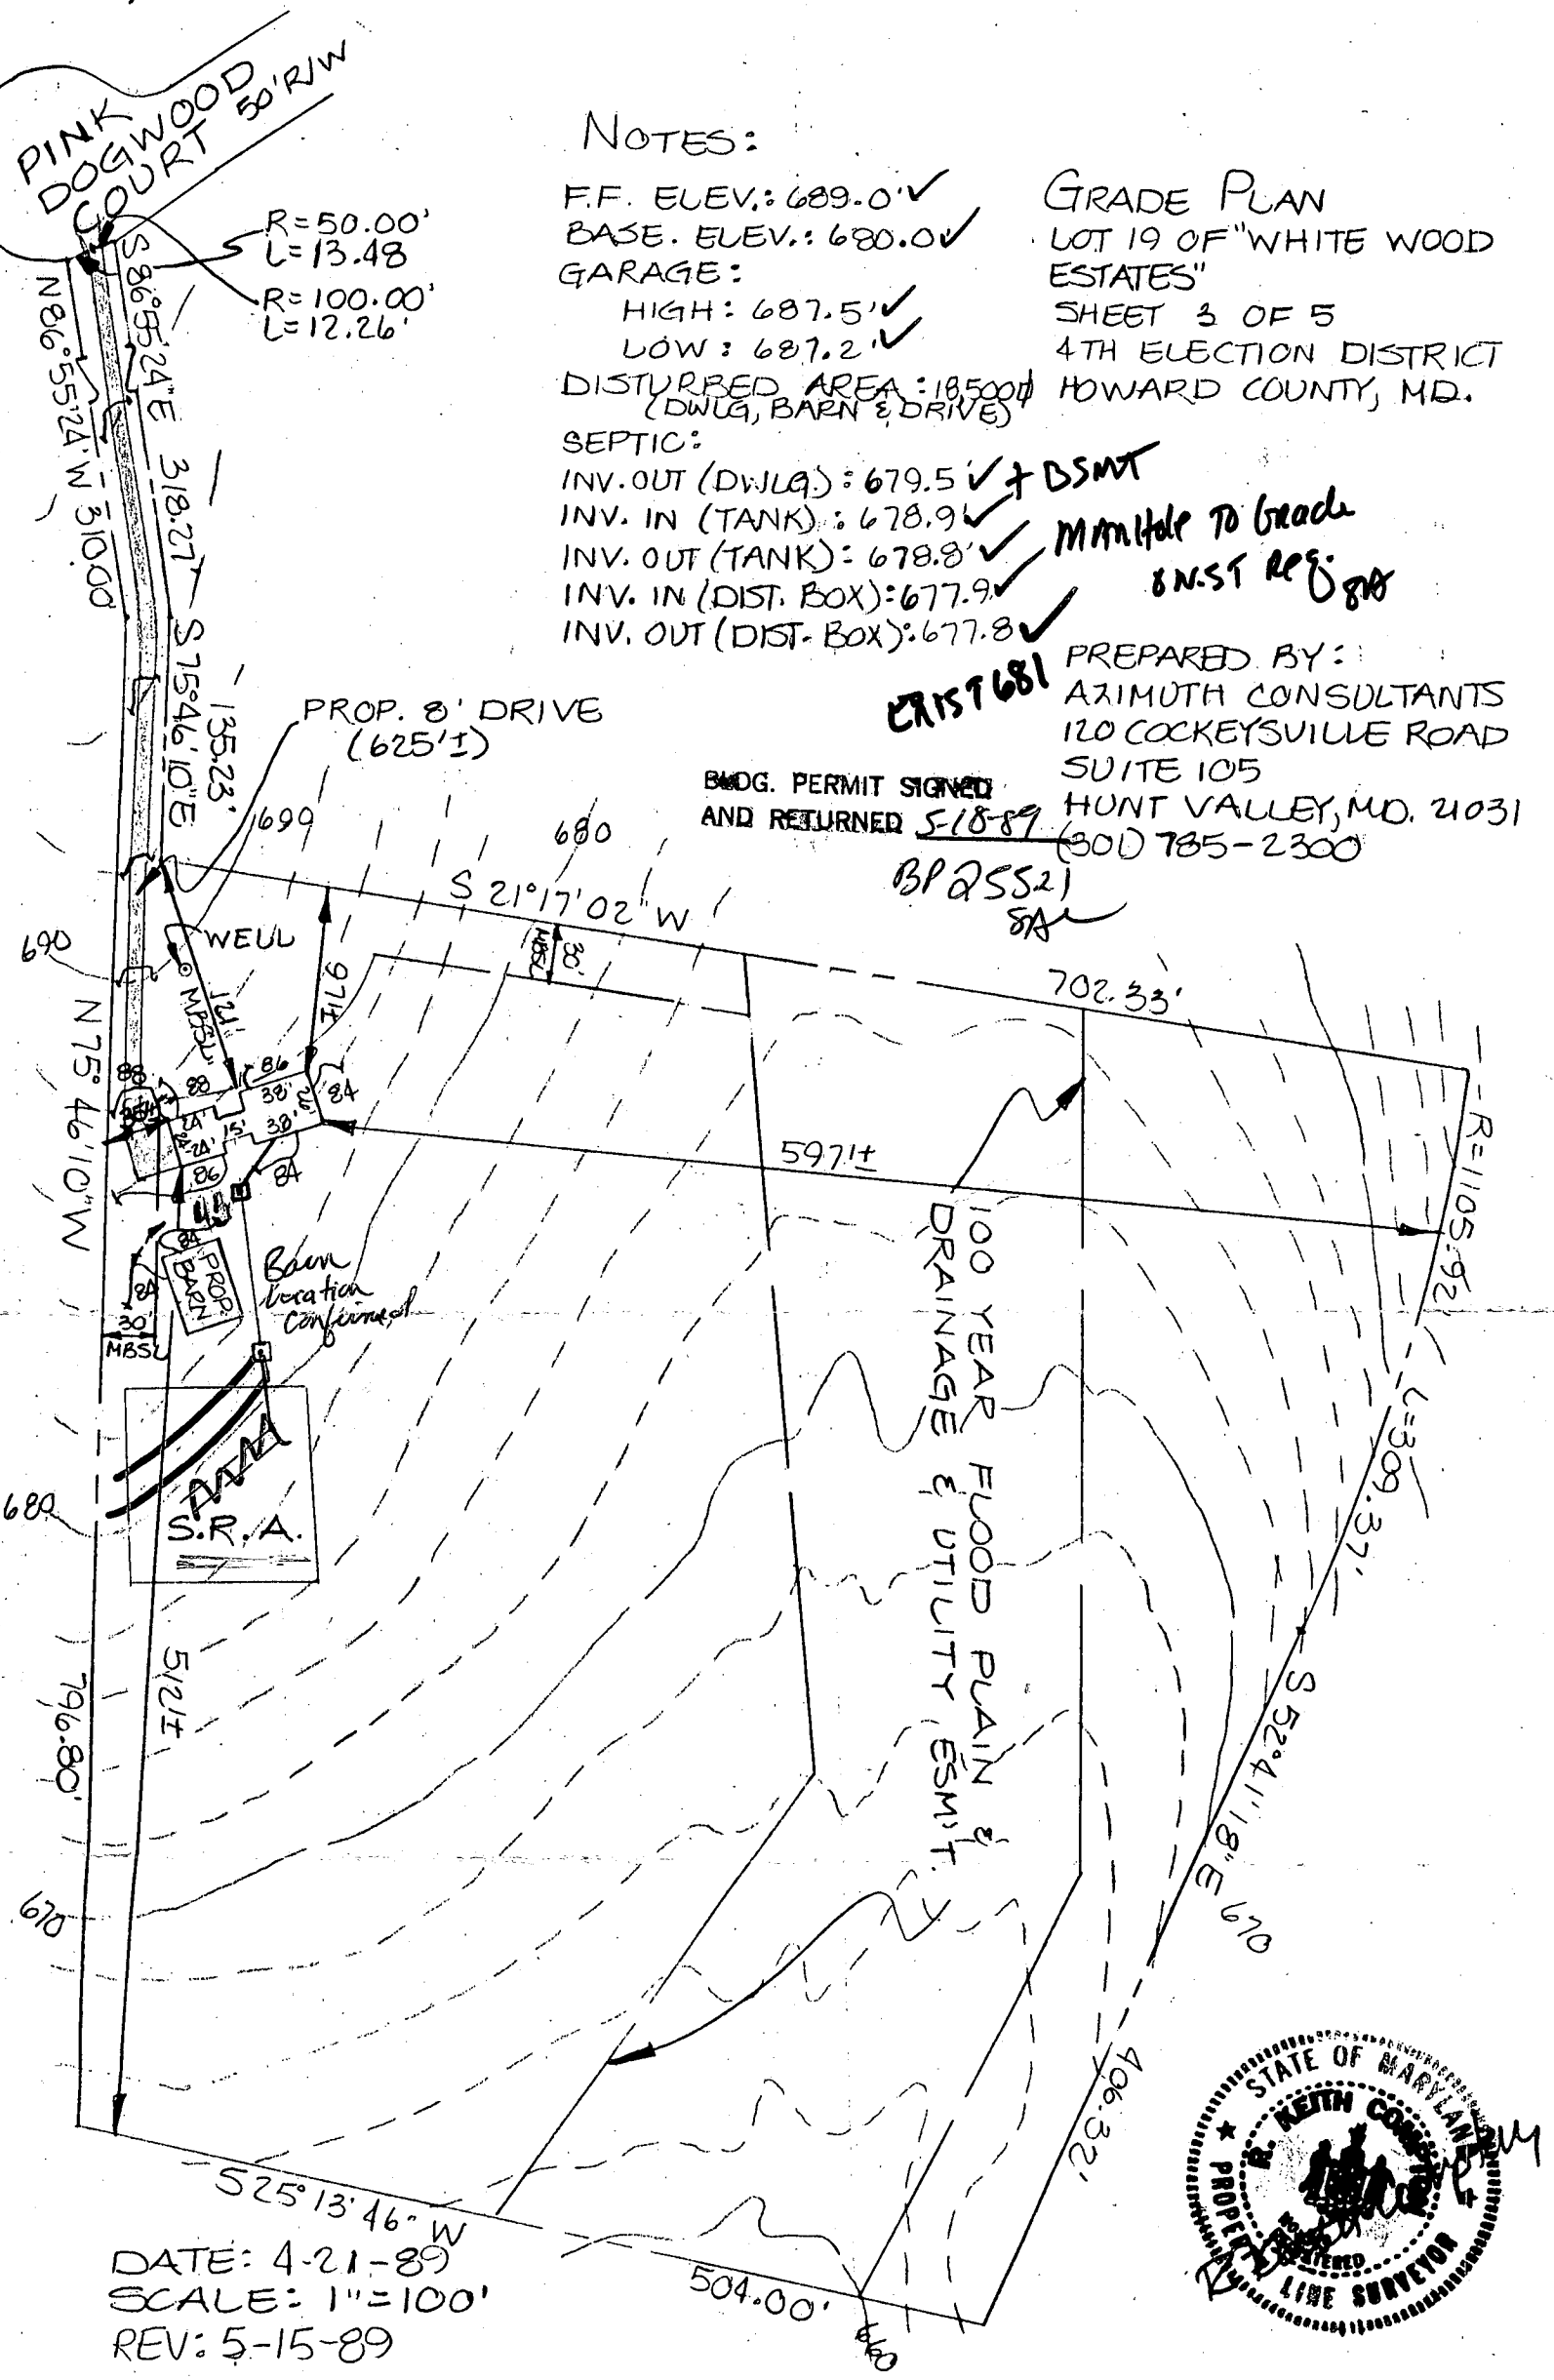 PINK
DOGWOOD
COURT 50' R/W
R=50.00'
L=13.48
R=100.00'
L=12.26'
S 86°55'24"E 318.27
N86°55'24"W 310.00
NOTES:
F.F. ELEV.: 689.0'✓
BASE. ELEV.: 680.0✓
GARAGE:
HIGH: 687.5'✓
LOW: 687.2'✓
DISTURBED AREA: 18,500
(DWLG, BARN & DRIVE)
SEPTIC:
INV. OUT (DWLG.): 679.5✓ + BSMT
INV. IN (TANK): 678.9'✓
INV. OUT (TANK): 678.8'✓
INV. IN (DIST. BOX): 677.9✓
INV. OUT (DIST. BOX): 677.8✓
Manhole To Grade
EXIST 681
GRADE PLAN
LOT 19 OF "WHITE WOOD
ESTATES"
SHEET 3 OF 5
4TH ELECTION DISTRICT
HOWARD COUNTY, MD.
PREPARED BY:
AZIMUTH CONSULTANTS
120 COCKEYSVILLE ROAD
SUITE 105
HUNT VALLEY, MD. 21031
(301) 785-2300
BLDG. PERMIT SIGNED
AND RETURNED 5-18-89
BP 25521
S75°46'10"E
135.23'
PROP. 8' DRIVE
(625'±)
699
680
S 21°17'02" W
702.33'
30'
MBSL
690
WELL
MBSL
121'
97'±
N 75°46'10"W
796.80'
88
88
86
38'
26'
84
24'
24'
15'
38'
86
84
84
84
PROP.
BARN
Barn
location
confirmed
30'
MBSL
S.R.A.
680
512'±
597'±
100 YEAR FLOOD PLAIN &
DRAINAGE & UTILITY ESM'T.
R=1105.92'
L=309.37'
S 52°41'18"E
406.32'
670
670
S25°13'46" W
504.00'
660
DATE: 4-21-89
SCALE: 1"=100'
REV: 5-15-89
STATE OF MARYLAND
R. KEITH
PROPERTY LINE SURVEYOR